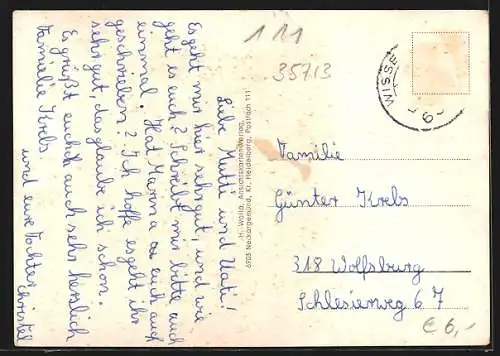 Liebe Mutti und Vati!
Es geht mir hier sehr gut, und wie
geht es euch? Schreibt mir bitte auch
einmal. Hat Marina an euch auch
geschrieben? Ich hoffe es geht ihr
sehr gut, das glaube ich schon.
Es grüßt euch auch sehr herzlich
Familie Krebs
und eure Tochter
Christel
H. Wolila, Ansichtskartenverlag,
6903 Neckargemünd, Kr. Heidelberg, Postfach 111
111
35713
WISSE
Familie
Günter Krebs
318 Wolfsburg
Schlesierweg 67
€ 6,-